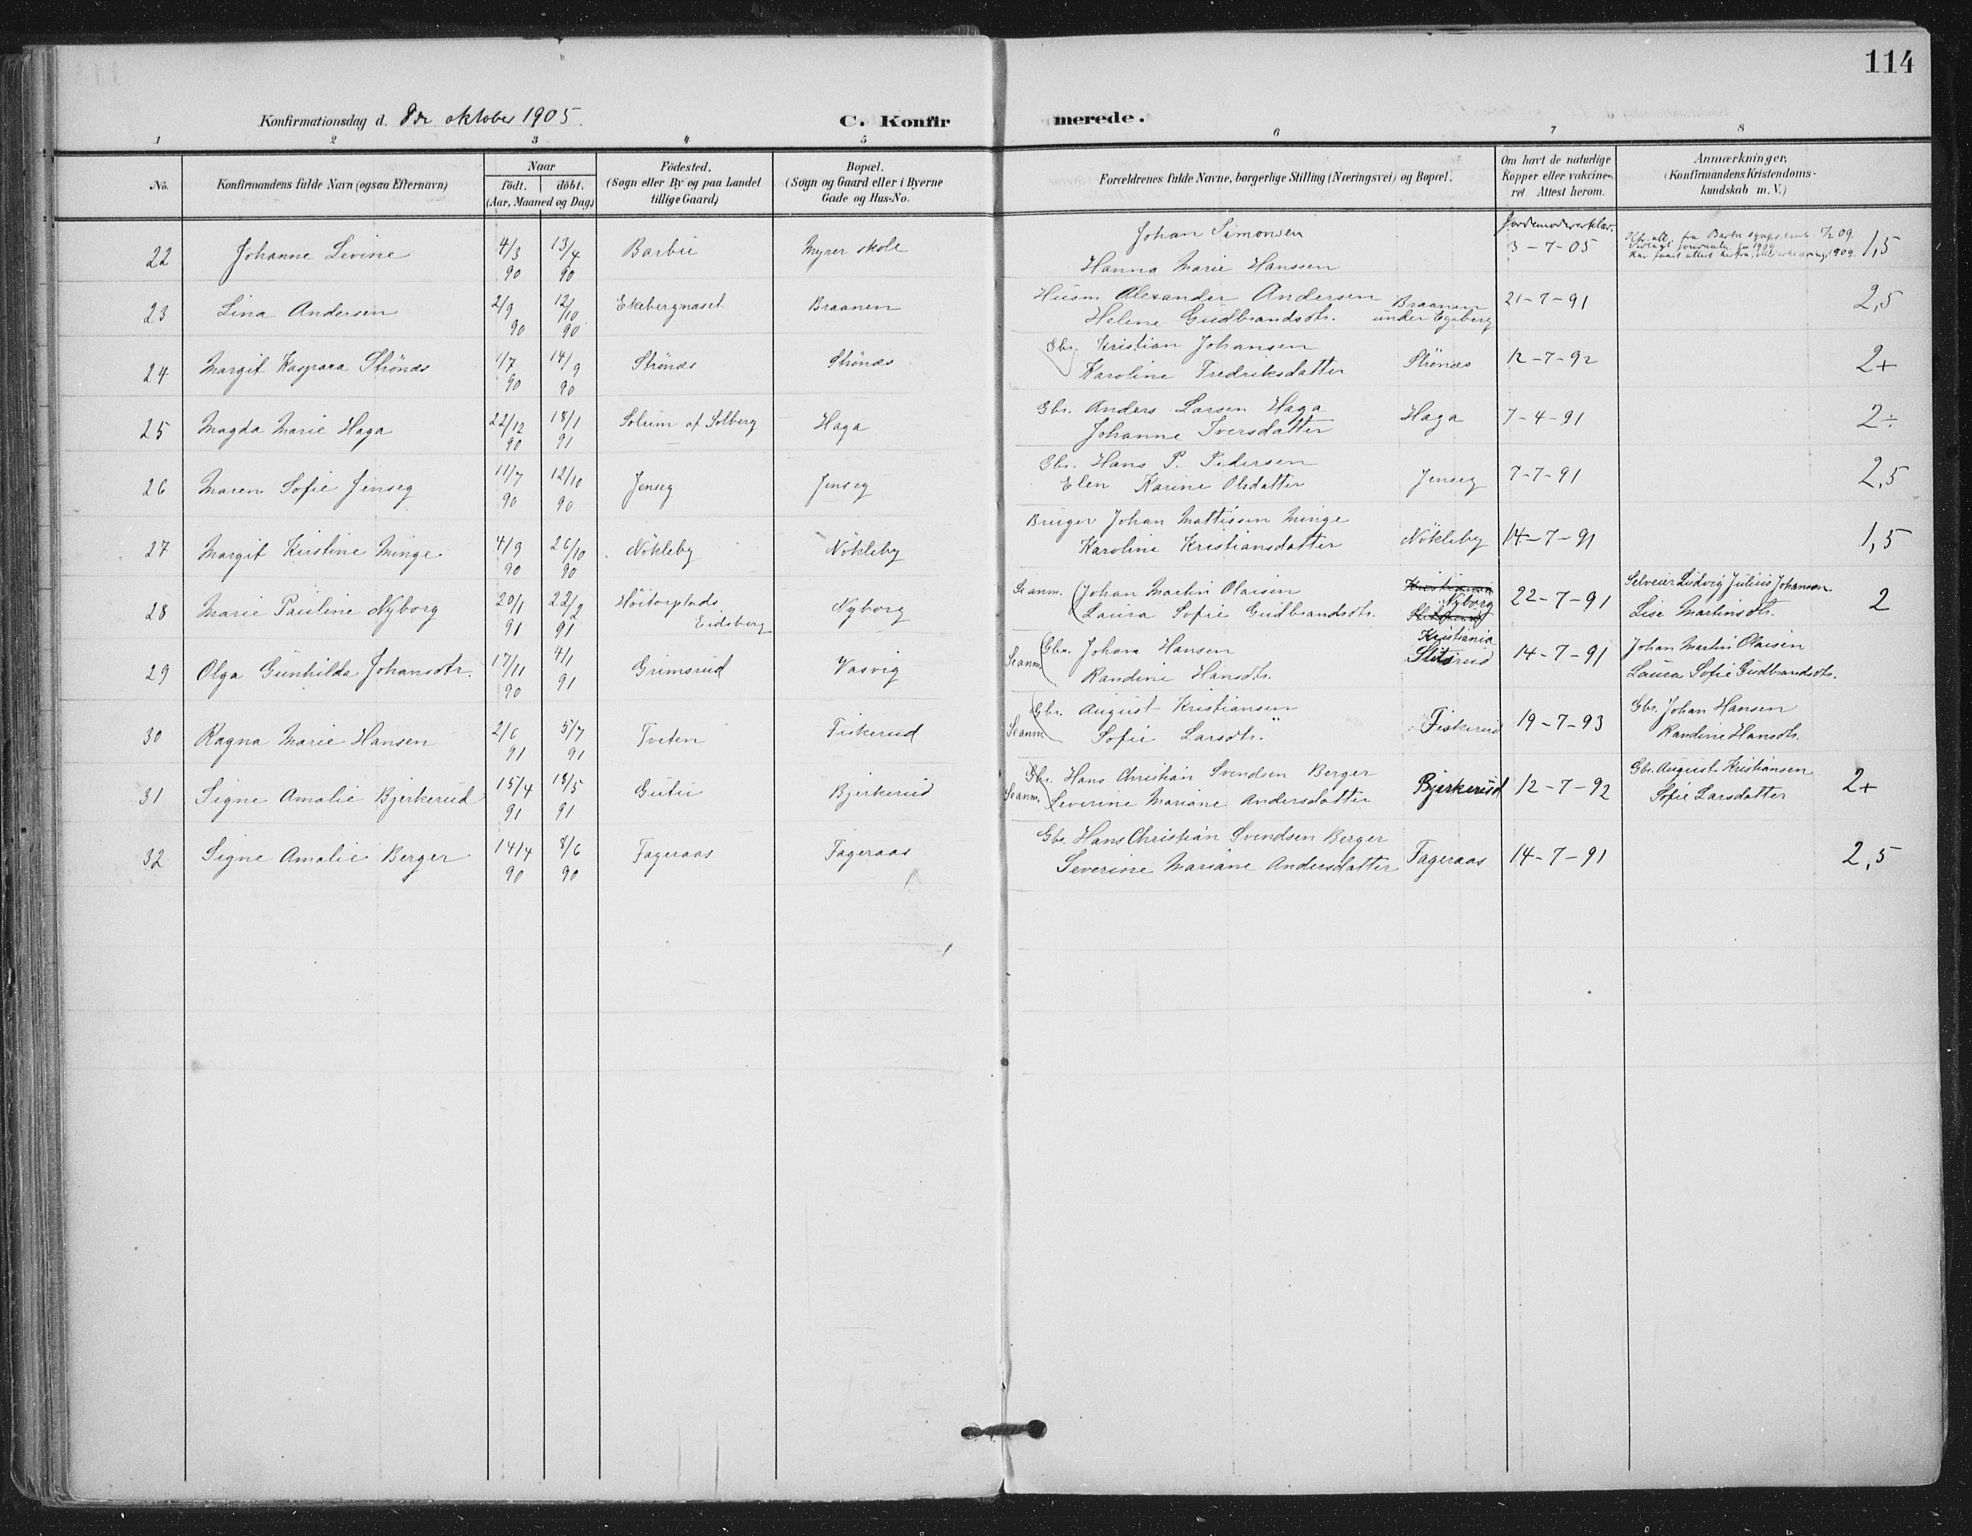 114
Konfirmationsdag d. 8de oktober 1905.
C. Konfirmerede.
1 2 3 4 5 6 7 8
No.
Konfirmandens fulde Navn (ogsaa Efternavn)
Naar
født. døbt.
(Aar, Maaned og Dag)
Fødested.
(Sogn eller By og paa Landet
tillige Gaard)
Bopæl.
(Sogn og Gaard eller i Byerne
Gade og Hus-No.
Forældrenes fulde Navne, borgerlige Stilling (Næringsvei) og Bopæl.
Om havt de naturlige
Kopper eller vakcine-
ret. Attest herom.
Anmærkninger.
(Konfirmandens Kristendoms-
kundskab m. V.)
22 Johanne Levine 4/3 90 13/4 90 Barbu Myrer skole
Johan Simonsen
Hanna Marie Hanssen
3-7-05 1,5
23 Lina Andersen 2/9 90 12/10 90 Ekebergnaset Braanen
Husm. Alexander Andersen Braanen
Helene Gudbrandsdtr. under Egeberg
21-7-91 2,5
24 Margit Kaspara Strönæs 1/7 90 14/9 90 Strönæs Strönæs
Gbr. Kristian Johansen
Karoline Fredriksdatter Strönæs
12-7-92 2+
25 Magda Marie Haga 22/12 90 18/1 91 Solum af Solberg Haga
Gbr. Anders Larsen Haga
Johanne Iversdatter Haga
7-4-91 2÷
26 Maren Sofie Jenseg 11/7 90 12/10 90 Jenseg Jenseg
Gbr. Hans P. Pedersen
Elen Karine Olsdatter Jenseg
7-7-91 2,5
27 Margit Kirstine Minge 4/9 90 26/10 90 Nökleby Nökleby
Bruger Johan Mattissen Minge
Karoline Kristiansdatter Nökleby
14-7-91 1,5
28 Marie Pauline Nyborg 20/1 91 22/2 91 Höitorplads Eidsberg Nyborg
Se anm. Johan Martin Olaisen
Laura Sofie Gudbrandsdtr. Kristiania Nyborg
22-7-91 Selveier Ludvig Julius Johansen
Lise Martinsdtr. 2
29 Olga Gunhilda Johansdtr. 17/11 90 4/1 91 Grimsrud Vasvig
Se anm. Gbr. Johan Hansen Kristiania
Randine Hansdtr. Slitsrud
14-7-91 Johan Martin Olaisen
Laura Sofie Gudbrandsdtr.
30 Ragna Marie Hansen 2/6 91 5/7 91 Tveten Fiskerud
Se anm. Gbr. August Kristiansen
Sofie Larsdtr. Fiskerud
19-7-93 Gbr. Johan Hansen
Randine Hansdtr.
31 Signe Amalie Bjerkerud 15/4 91 18/5 91 Gutu Bjerkerud
Se anm. Gbr. Hans Christian Svendsen Berger
Severine Mariane Andersdatter Bjerkerud
12-7-92 Gbr. August Kristiansen
Sofie Larsdatter 2+
32 Signe Amalie Berger 14/4 90 8/6 90 Fageraas Fageraas
Gbr. Hans Christian Svendsen Berger
Severine Mariane Andersdatter Fageraas
14-7-91 2,5